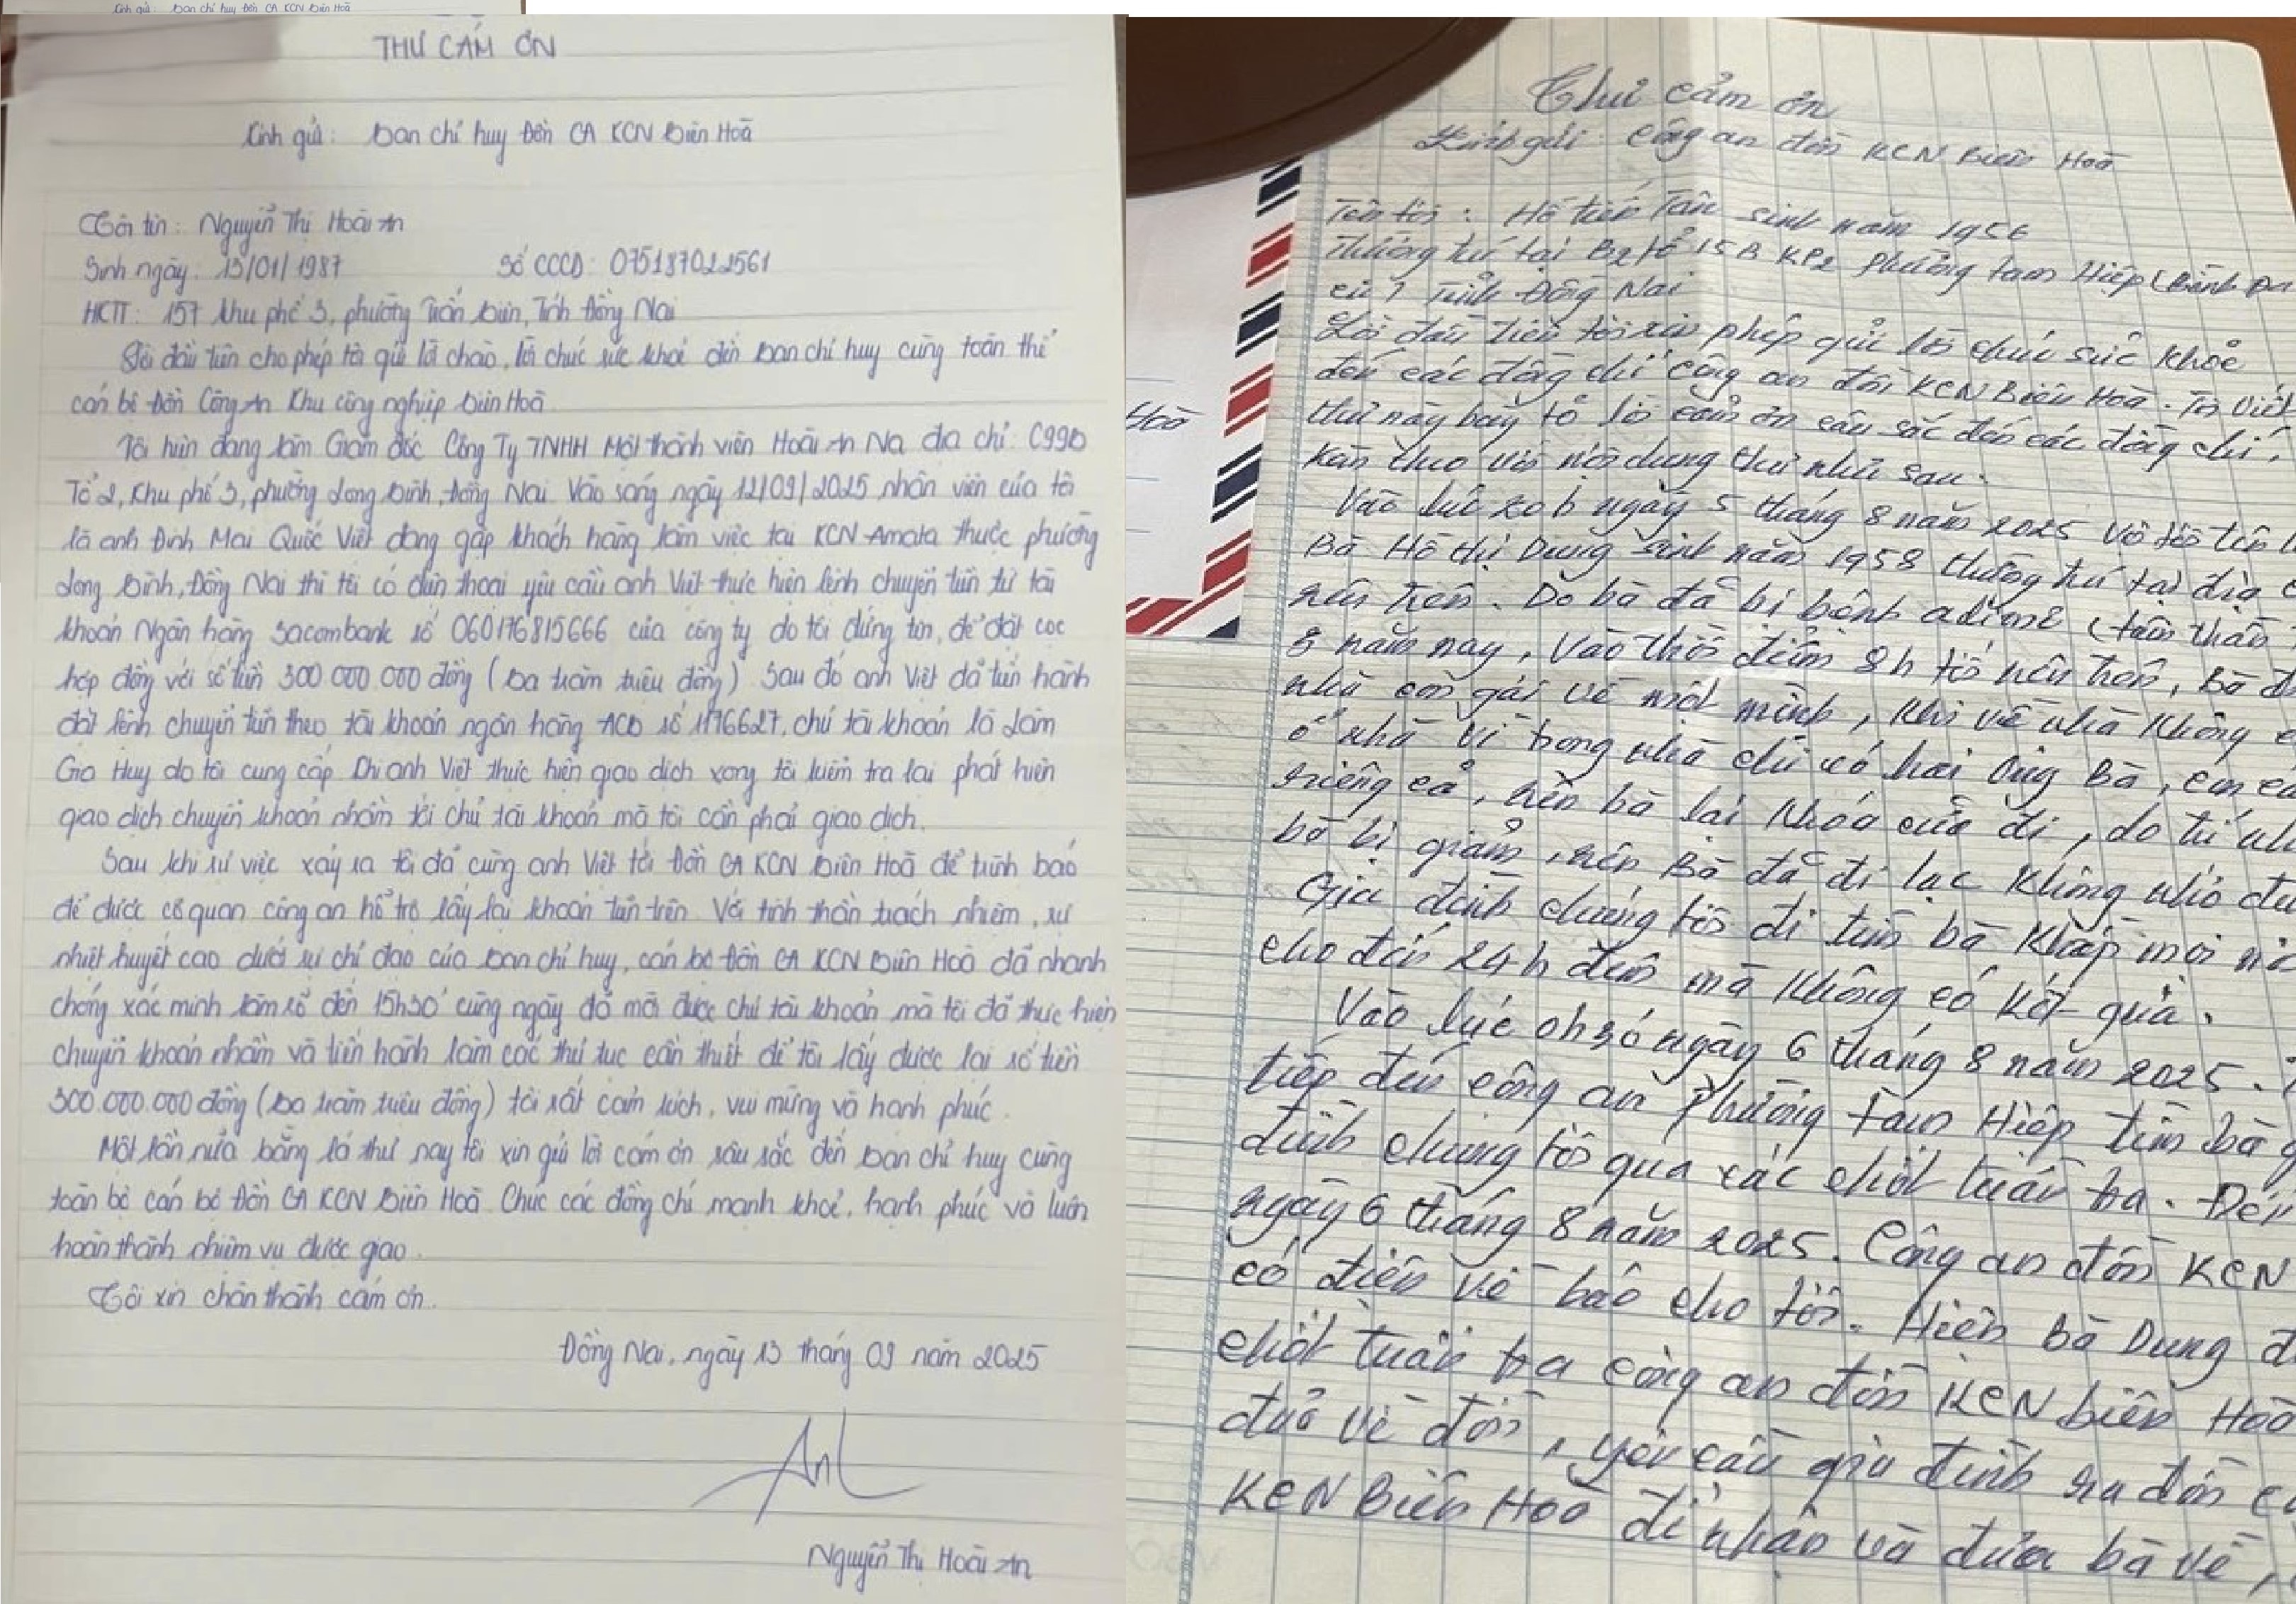 Kính gửi: Ban chỉ huy Đồn CA KCN Biên Hoà
THƯ CẢM ƠN
Kính gửi: Ban chỉ huy Đồn CA KCN Biên Hoà
Tôi tên: Nguyễn Thị Hoài An
Sinh ngày: 13/01/1987 Số CCCD: 075187022561
HKTT: 157 khu phố 3, phường Trấn Biên, Tỉnh Đồng Nai
Lời đầu tiên cho phép tôi gửi lời chào, lời chúc sức khoẻ đến Ban chỉ huy cùng toàn thể
cán bộ Đồn Công An Khu công nghiệp Biên Hoà
Tôi hiện đang làm Giám đốc Công Ty TNHH Một thành viên Hoài An Na địa chỉ: C99B
Tổ 2, Khu phố 3, phường Long Bình, Đồng Nai. Vào sáng ngày 12/09/2025 nhân viên của tôi
là anh Đinh Mai Quốc Việt đang gặp khách hàng làm việc tại KCN Amata thuộc phường
Long Bình, Đồng Nai thì tôi có điện thoại yêu cầu anh Việt thực hiện lệnh chuyển tiền từ tài
khoản Ngân hàng Sacombank số 060176815666 của công ty do tôi đứng tên, để đặt cọc
hợp đồng với số tiền 300.000.000 đồng (Ba trăm triệu đồng). Sau đó anh Việt đã tiến hành
đặt lệnh chuyển tiền theo tài khoản ngân hàng ACB số 1176627, chủ tài khoản là Lâm
Gia Huy do tôi cung cấp. Khi anh Việt thực hiện giao dịch xong tôi kiểm tra lại phát hiện
giao dịch chuyển khoản nhầm tới chủ tài khoản mà tôi cần phải giao dịch.
Sau khi sự việc xảy ra tôi đã cùng anh Việt tới Đồn CA KCN Biên Hoà để trình báo
để được cơ quan công an hỗ trợ lấy lại khoản tiền trên. Với tinh thần trách nhiệm, sự
nhiệt huyết cao dưới sự chỉ đạo của Ban chỉ huy, cán bộ Đồn CA KCN Biên Hoà đã nhanh
chóng xác minh làm rõ đến 15h30' cùng ngày đã mời được chủ tài khoản mà tôi đã thực hiện
chuyển khoản nhầm và tiến hành làm các thủ tục cần thiết để tôi lấy được lại số tiền
300.000.000 đồng (Ba trăm triệu đồng) tôi rất cảm kích, vui mừng và hạnh phúc.
Một lần nữa bằng lá thư này tôi xin gửi lời cám ơn sâu sắc đến Ban chỉ huy cùng
toàn bộ cán bộ Đồn CA KCN Biên Hoà. Chúc các đồng chí mạnh khoẻ, hạnh phúc và luôn
hoàn thành nhiệm vụ được giao.
Tôi xin chân thành cám ơn.
Đồng Nai, ngày 13 tháng 09 năm 2025
An
Nguyễn Thị Hoài An
Hoà
Thư cảm ơn
Kính gửi: Công an đồn KCN Biên Hoà
Tên tôi: Hồ Tiến Tân sinh năm 1956
Thường trú tại B2 tổ 15B KP2 phường Tam Hiệp (Bình Đa
cũ) Tỉnh Đồng Nai
Lời đầu tiên tôi xin phép gửi lời chúc sức khoẻ
đến các đồng chí công an đồn KCN Biên Hoà. Tôi viết
thư này bày tỏ lời cảm ơn sâu sắc đến các đồng chí,
kèm theo với nội dung thư như sau.
Vào lúc 20h ngày 5 tháng 8 năm 2025 vợ tôi tên
Bà Hồ Thị Dung sinh năm 1958 thường trú tại địa
nêu trên. Do bà đã bị bệnh adime (tâm thần
8 năm nay, vào thời điểm 8h tối nêu trên, Bà
nhà con gái về một mình, khi về nhà không
ở nhà vì trong nhà chỉ có hai ông Bà, con
riêng cả, nên bà lại khóa cửa đi, do trí
bà bị giảm, nên Bà đã đi lạc không nhớ
Gia đình chúng tôi đi tìm bà khắp mọi
cho đến 24h đêm mà không có kết quả.
Vào lúc 0h30 ngày 6 tháng 8 năm 2025.
tiếp đến công an Phường Tam Hiệp tìm bà
đình chúng tôi qua các chốt tuần tra. Đến
ngày 6 tháng 8 năm 2025. Công an đồn KCN
có điện về báo cho tôi. Hiện Bà Dung
chốt tuần tra công an đồn KCN Biên Hoà
đưa về đồn, yêu cầu gia đình ra đồn
KCN Biên Hoà để nhận và đưa bà về,